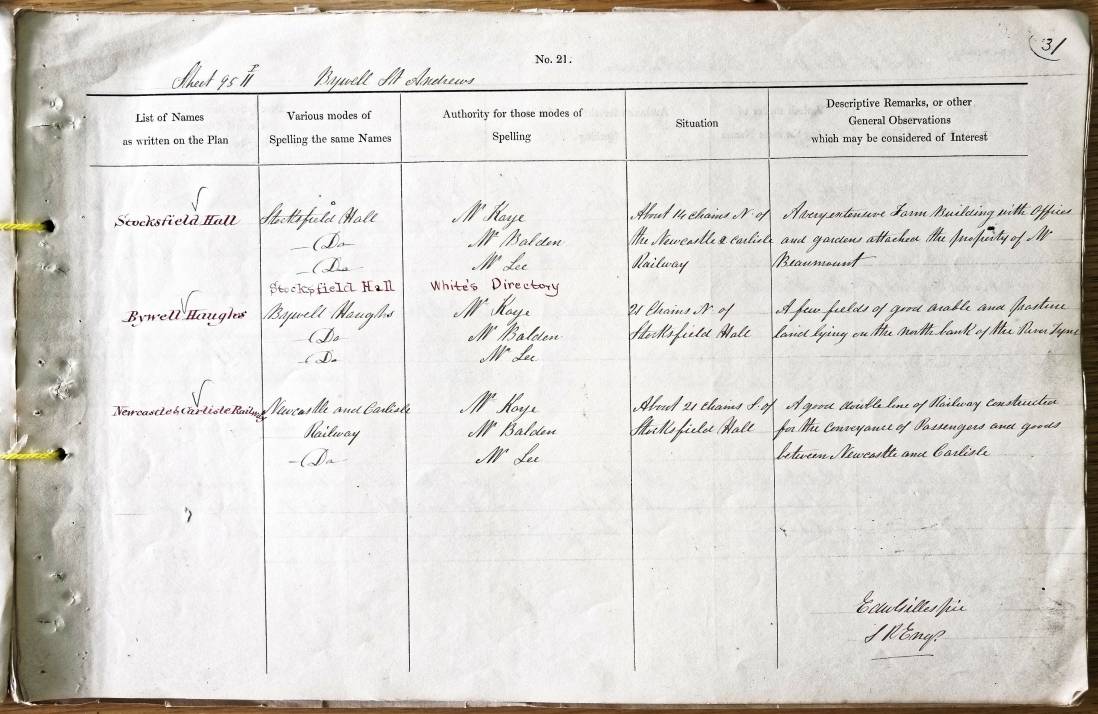 31
No. 21.
Sheet 95 II Bywell St Andrews
List of Names
as written on the Plan
Various modes of
Spelling the same Names
Authority for those modes of
Spelling
Situation
Descriptive Remarks, or other
General Observations
which may be considered of Interest
Stocksfield Hall
Stocksfield Hall
Do
Do
Stocksfield Hall
Mr Kaye
Mr Balden
Mr Lee
White's Directory
About 14 chains N. of
the Newcastle & Carlisle
Railway
A very extensive Farm Building with Offices
and gardens attached the property of Mr
Beaumount
Bywell Haughs
Bywell Haughs
Do
Do
Mr Kaye
Mr Balden
Mr Lee
21 Chains N. of
Stocksfield Hall
A few fields of good arable and pasture
land lying on the north bank of the River Tyne
Newcastle & Carlisle Railway
Newcastle and Carlisle
Railway
Do
Mr Kaye
Mr Balden
Mr Lee
About 21 chains S. of
Stocksfield Hall
A good double line of Railway constructed
for the conveyance of Passengers and goods
between Newcastle and Carlisle
Edw Gillespie
S R Engs